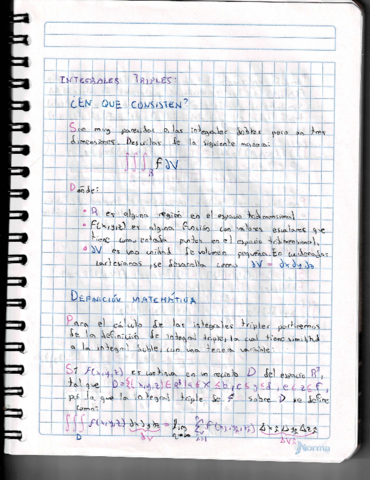 INTEGRALES TRIPLES:
¿EN QUE CONSISTEN?
Son muy parecidas a las integrales dobles pero en tres
dimensiones. Descritas de la siguiente manera:
∭_R f dV
Dónde:
• R es alguna región en el espacio tridimensional
• f(x,y,z) es alguna función con valores escalares que
tiene como entrada puntos en el espacio tridimensional.
• dV es una unidad de volumen pequeña. En coordenadas
cartesianas, se desarrolla como dV = dx dy dz
DEFINICIÓN MATEMÁTICA
Para el cálculo de las integrales triples partiremos
de la definición de integral triple, la cual tiene similitud
a la integral doble, con una tercera variable.
Si f(x,y,z) es continua en un recinto D del espacio R³,
tal que D={(x,y,z)∈R³|a≤x≤b, c≤y≤d, e≤z≤f},
la que la integral triple de f sobre D se define
como:
∭ f(x,y,z) dx dy dz = lim Σ f(xi,yi,zi) Δxi Δyi Δzi
D dV n→∞ i=1 ΔVi
Norma